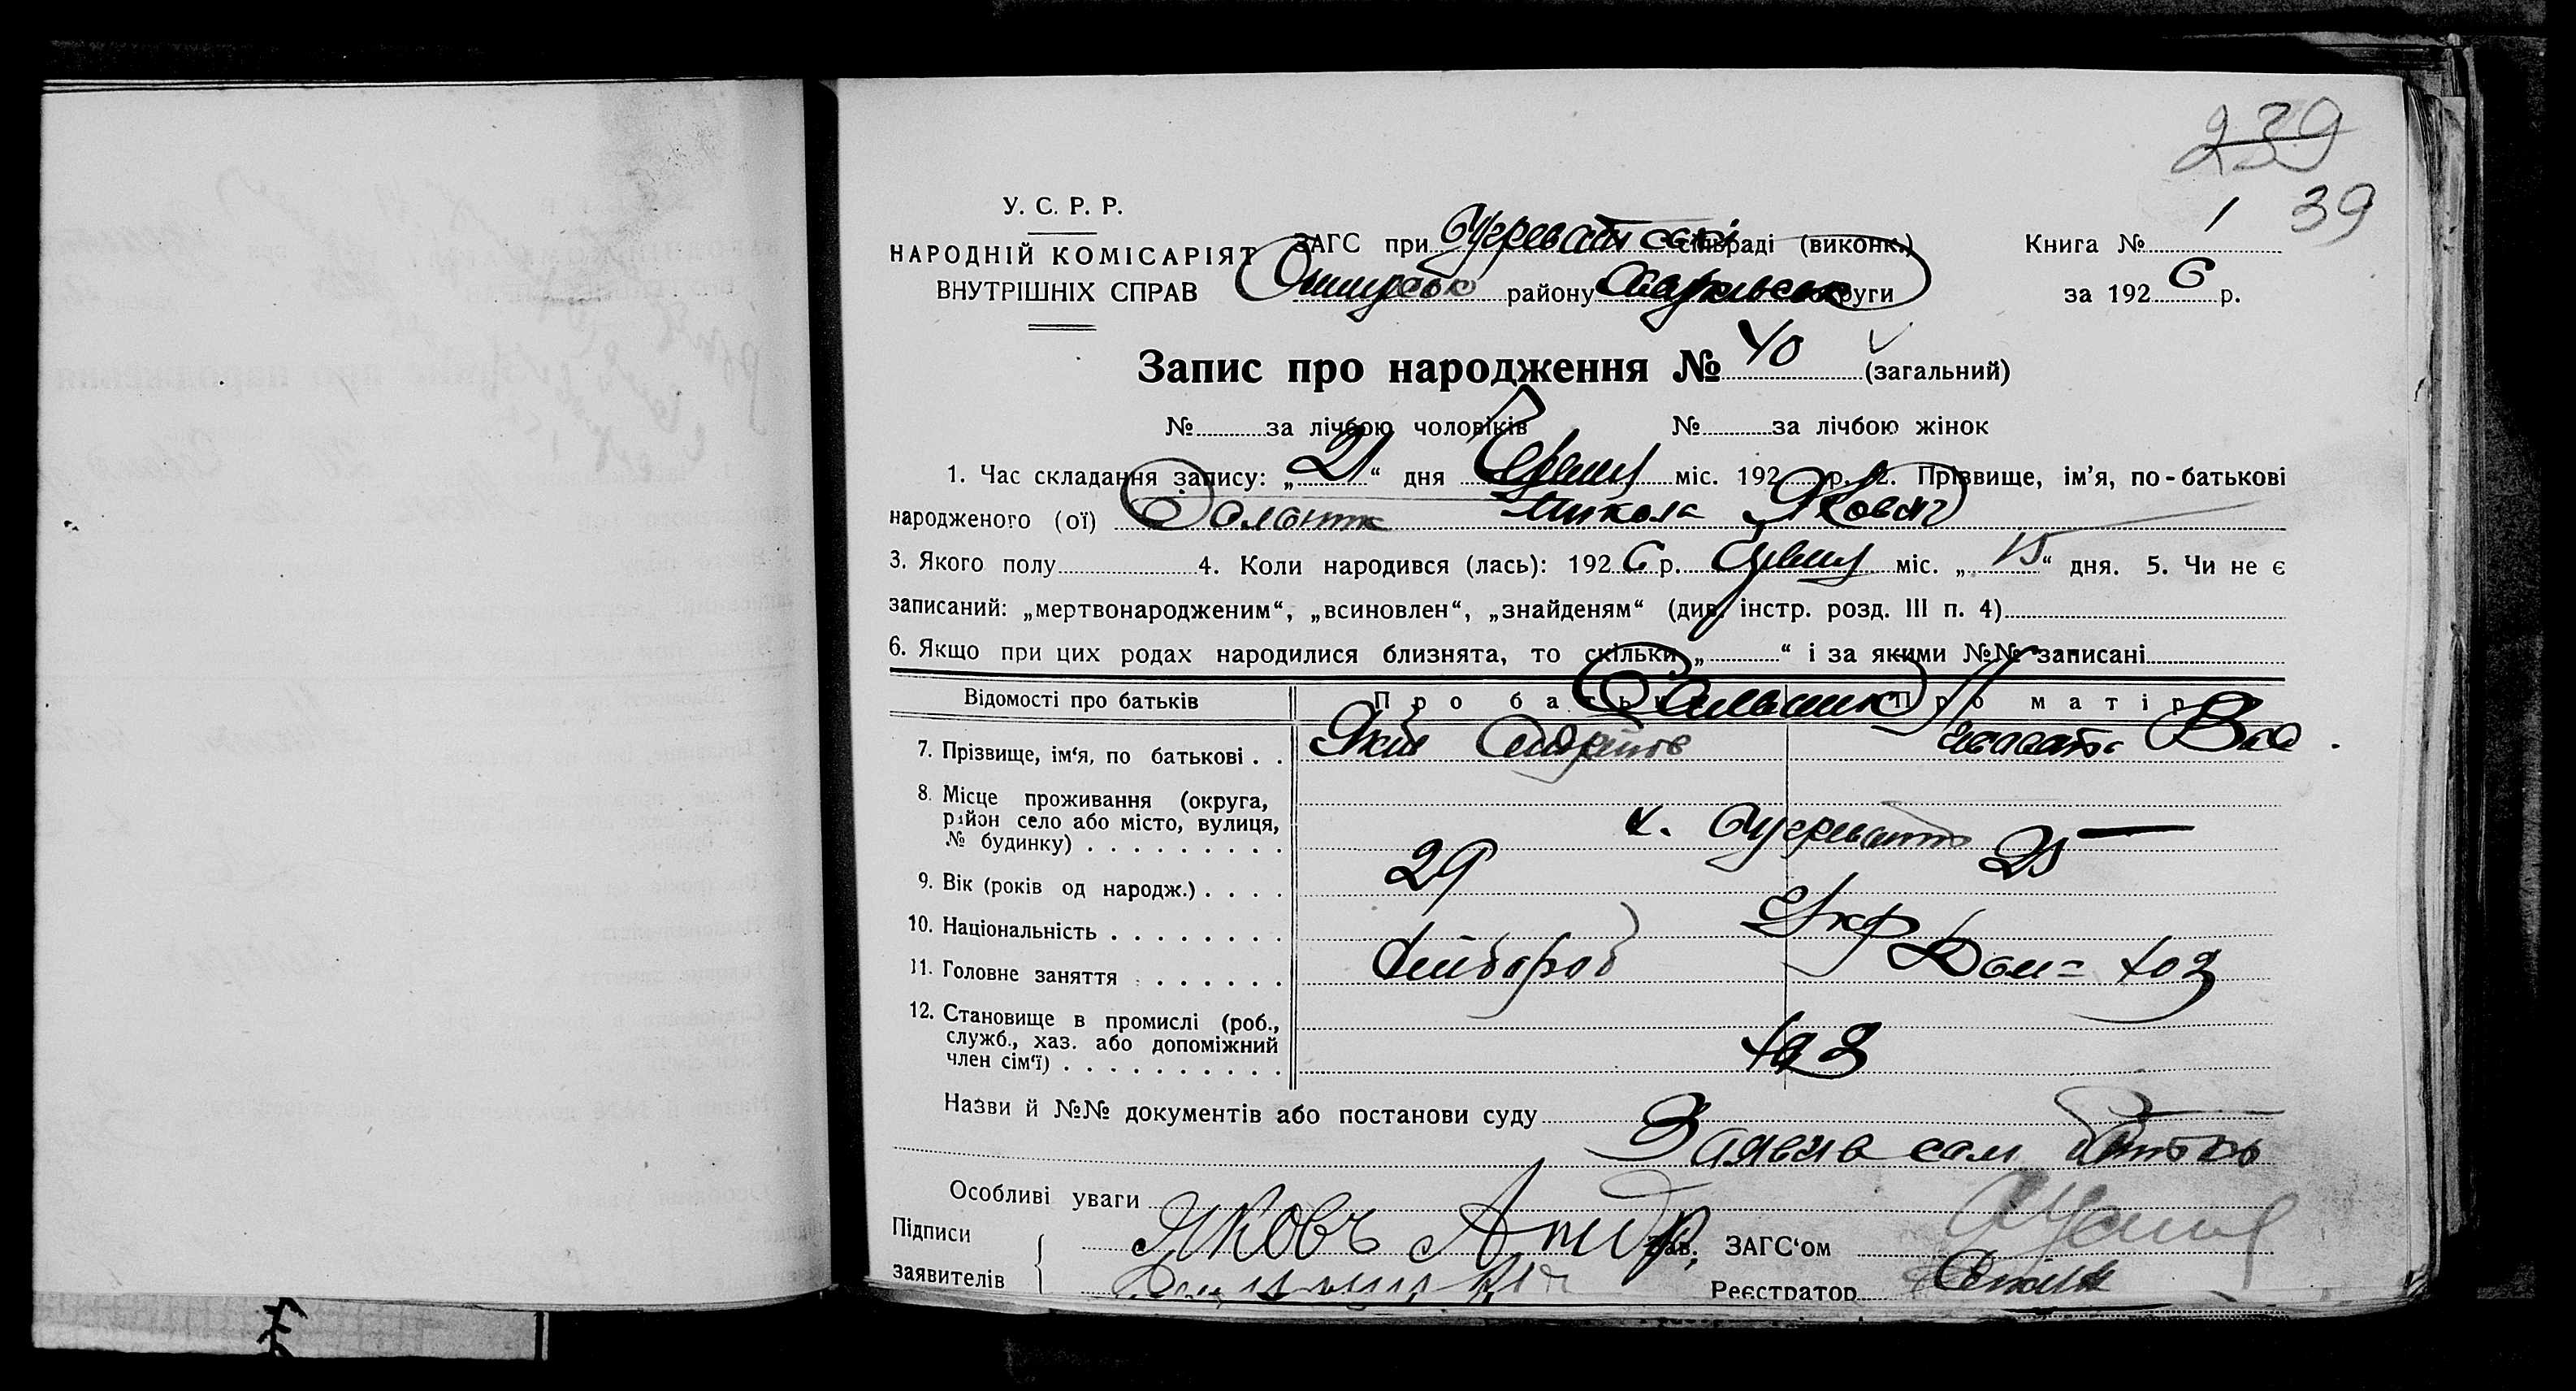 239
39
У. С. Р. Р.
НАРОДНІЙ КОМІСАРІЯТ
ВНУТРІШНІХ СПРАВ
ЗАГС при сільраді (виконк.)
району округи
Книга № 1
за 192 6 р.
Запис про народження № 40 (загальний)
№ за лічбою чоловіків № за лічбою жінок
1. Час складання запису: „ 21 “ дня Червня міс. 192 р. 2. Прізвище, ім’я, по-батькові
народженого (ої) Микола Якович
3. Якого полу 4. Коли народився (лась): 192 6 р. Червня міс. „ 15 “ дня. 5. Чи не є
записаний: „мертвонародженим“, „всиновлен“, „знайденям“ (див. інстр. розд. III п. 4)
6. Якщо при цих родах народилися близнята, то скільки „ “ і за якими №№ записані
Відомості про батьків Про батька Про матір
7. Прізвище, ім‘я, по батькові . . Яків Андрійов Вас
8. Місце проживання (округа,
район село або місто, вулиця,
№ будинку) с.
9. Вік (років од народж.) 29 25
10. Національність Укр
11. Головне заняття Хлібороб Дом= хоз
12. Становище в промислі (роб.,
служб., хаз. або допоміжний
член сім‘ї) хаз
Назви й №№ документів або постанови суду
Заявив сам батько
Особливі уваги
Підписи
заявителів
Яковъ Андр
Зав. ЗАГС‘ом
Реєстратор